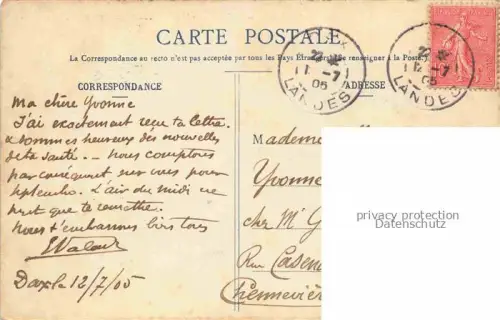 CARTE POSTALE
La Correspondance au recto n'est pas acceptée par tous les Pays Étrangers. Se renseigner à la Poste.
CORRESPONDANCE
ADRESSE
12-7
05
LANDES
12-7
05
LANDES
Ma chère Yvonne
J'ai exactement reçu ta lettre.
& sommes heureux des nouvelles
de ta santé. -- nous comptons
par conséquent sur vous pour
L'air du midi ne
peut que te remettre.
Nous t'embrassons bien tous
Dax le 12/7/05
Mademoi
Yvonne
chez Mr G
Rue Casen
Chennevièr
privacy protection
Datenschutz